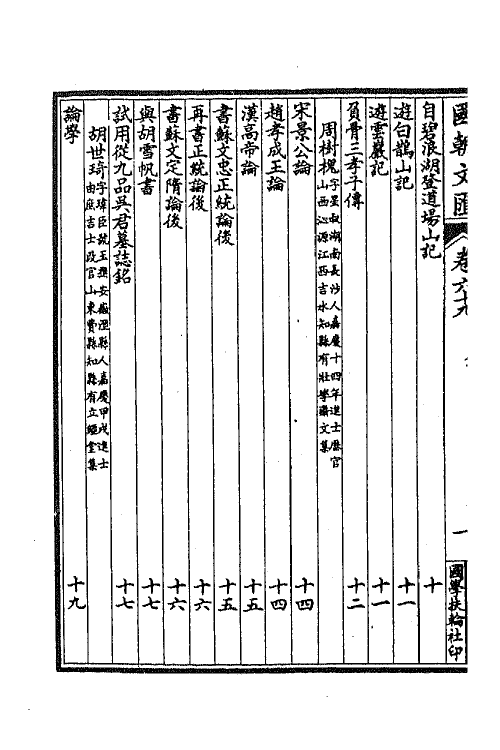 國朝文匯 卷六十九 一 國學扶輪社印
自碧浪湖登道場山記 十
遊白鵲山記 十一
遊雲巖記 十一
負骨三孝子傳 十二
周樹槐 字星叔湖南長沙人嘉慶十四年進士歷官
山西沁源江西吉水知縣有壯學齋文集
宋景公論 十四
趙孝成王論 十四
漢高帝論 十五
書蘇文忠正統論後 十五
再書正統論後 十六
書蘇文定隋論後 十六
與胡雪帆書 十七
試用從九品吳君墓誌銘 十七
胡世琦 字瑋臣號玉樵安徽涇縣人嘉慶甲戌進士
由庶吉士改官山東費縣知縣有立經堂集
論學 十九